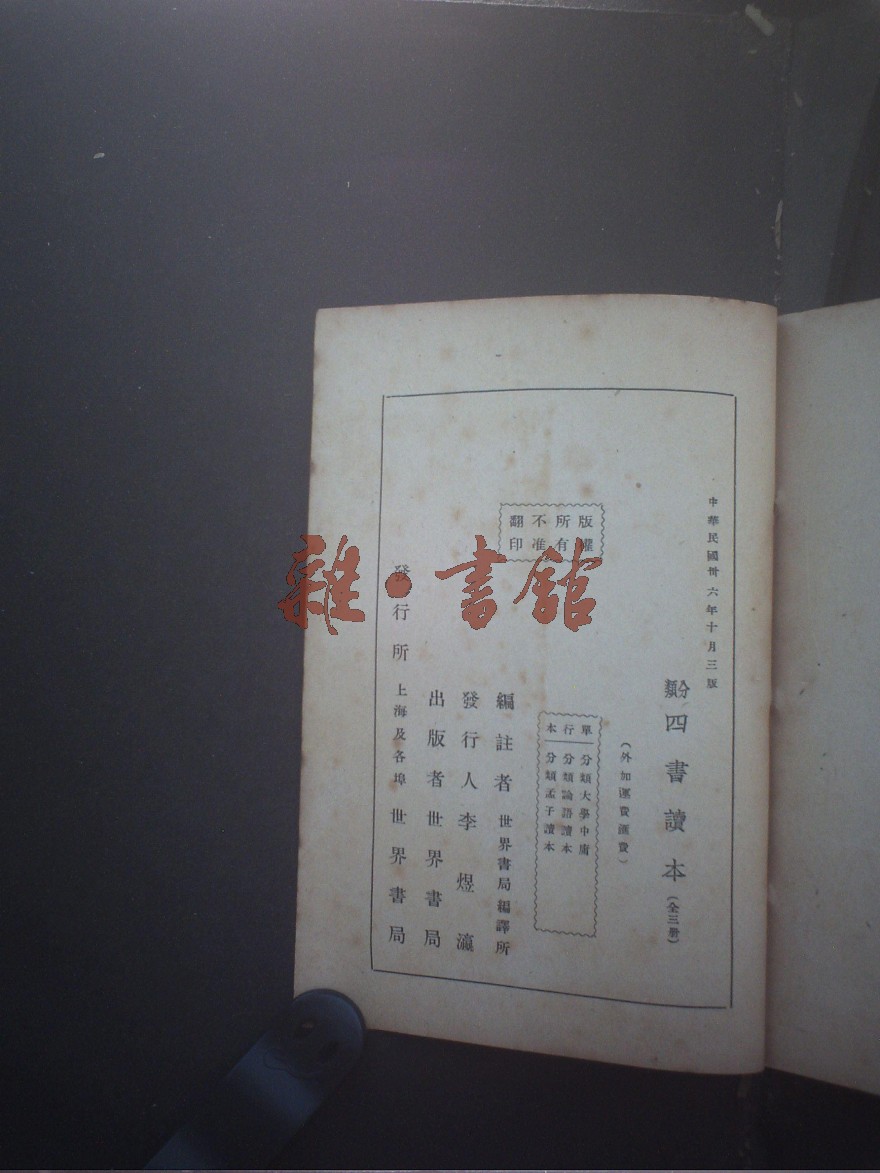 中華民國卅六年十月三版
分類四書讀本（全三册）
（外加運費滙費）
單行本
分類大學中庸
分類論語讀本
分類孟子讀本
版權所有不准翻印
編註者 世界書局編譯所
發行人 李煜瀛
出版者 世界書局
發行所 上海及各埠 世界書局
雜·書館